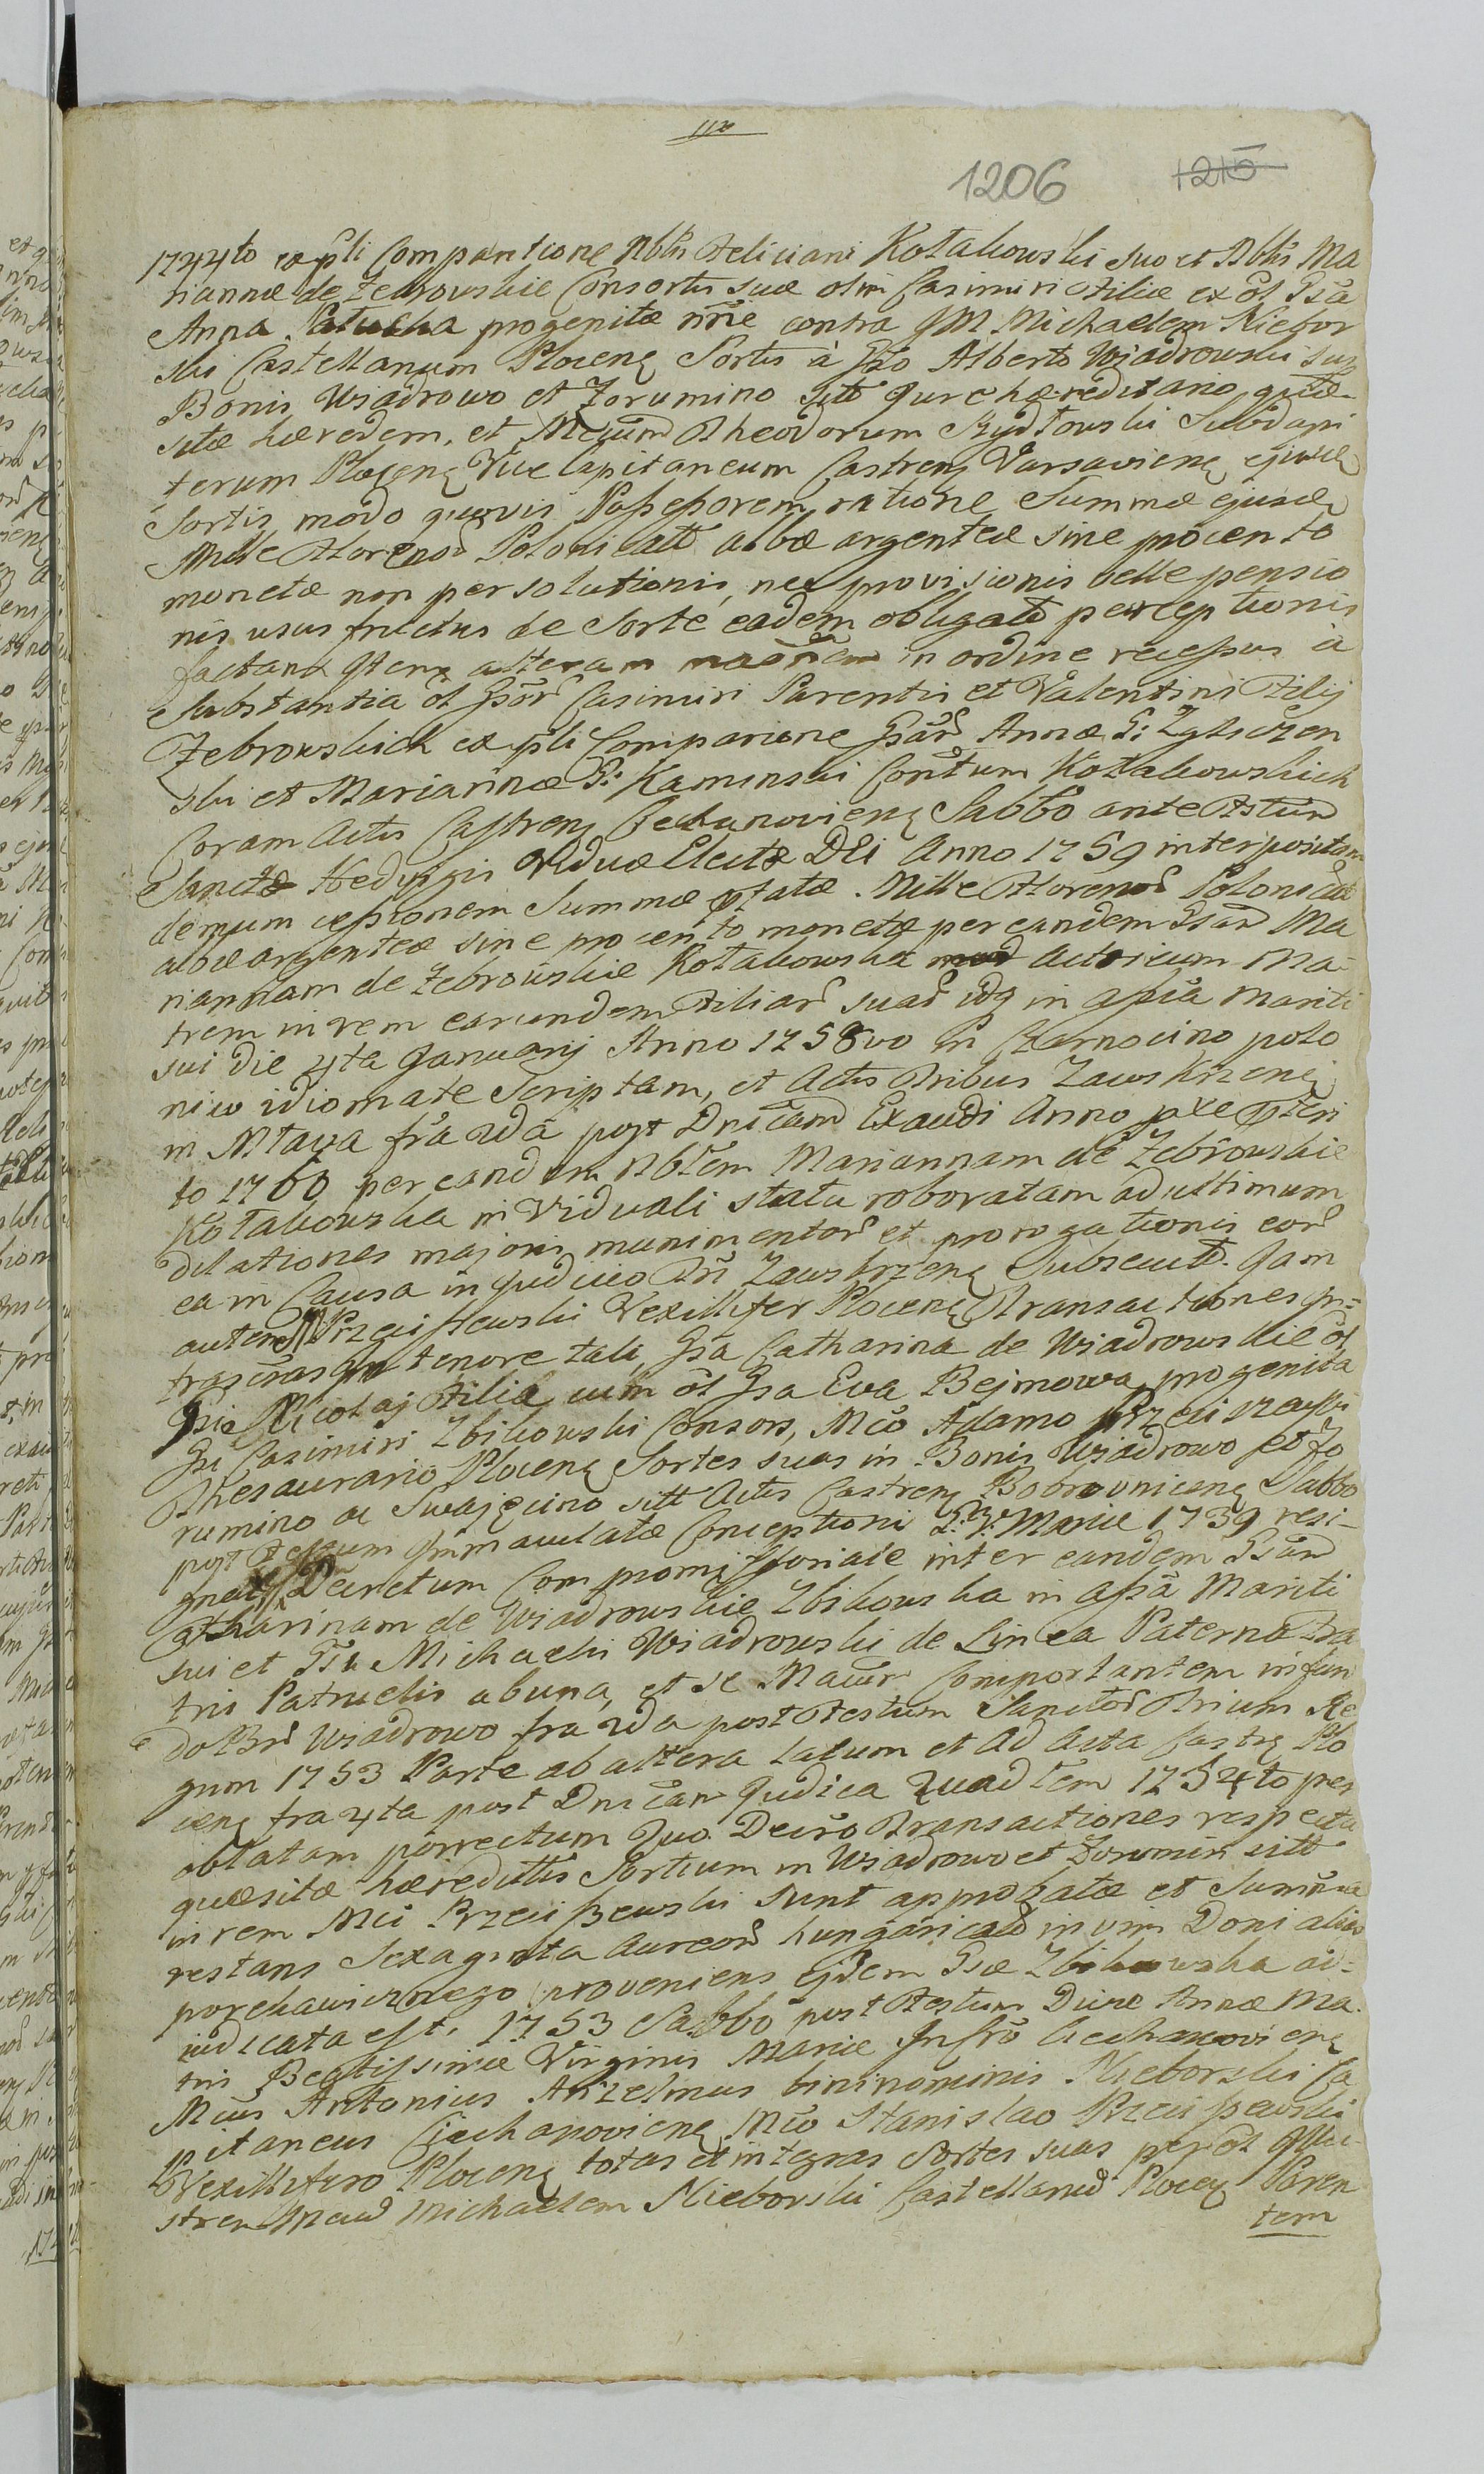 1206 1210
1744to ex pli Comparitione Nblis Feliciani Kołakowski suo et Nblis Ma
riannæ de Zebrowskie Consortis suæ olim Casimiri Filiæ ex ol Gsa
Anna progenitæ nñe contra JM Michaelem Niebor
ski Castellanum Plocens Sortis à Gso Alberto Wiadrowski in
Bonis Wiadrowo et Zorumino sitt Jure hæreditario quæ
sitæ hæredem, et Theodorum Szydłowski Subdapi
ferum Plocens Vice Capitaneum Castrens Varsaviens ejusd
Sortis modo quovis Possessorem ratione Summæ ejusd
Mille Florenor Polonicall albæ argenteæ sine procento
monetæ non persolutionis, nec provisionis velle pensio
nis usus fructus de Sorte eadem obligata perceptionis
factam Item alteram in ordine recessus à
Substantia ol Gsor Casimiri Parentis et Valentini Filij
Zebrowskich ex pli Comparione Gsar Annæ G: Zgliczyn
ski et Mariannæ G: Kaminski Conttum Kołakowskich
Coram Actis Castrens Ciechanoviens Sabbo ante Fstum
Sanctæ Hedvigis Viduæ Electæ DEi Anno 1759 interpositam
demum cessionem Summæ Mille Florenor Polonicall
albæ argenteæ sine procento monetæ per eandem Gsam Ma
riannam de Zebrowskie Kołakowska Actoreum Ma
trem in rem earundem Filiar suar idq in assã Mariti
sui die 4ta Januarij Anno 1758vo in Czarnocino polo
nico idiomate Scriptam, et Actis Tribus Zawskrzens
in Mława fra 2da post Dnicam Exaudi Anno pxe pteri
to 1760 per eandem Nblem Mariannam de Zebrowskie
Kołakowska in Viduali statu roboratam ad ultimum
dilationes majoris munimentor et prorogationis eor
ea in Causa in Judicio Zawskrzens Subsecutt. Jam
autem Przeciszewski Vexillifer Plocens Transactiones
tenore tali, Gsa Catharina de Wiadrowskie ol
Gsi Mikołaj Filia, cum ol Gsa Eva Bejmowa progenita
Gsi Casimiri Zbikowski Consors, Mco Adamo Przeciszewski
Thesaurario Plocens Sortes suas in Bonis Wiadrowo et Zo
rumino ac Swajęcino sitt Actis Castrens Bobrovnicens Sabbo
post Festum Immaculatæ Conceptioni B.V. Mariæ 1739 resi-
gnat, Decretum Compromissoriale inter eandem Gsam
Catharinam de Wiadrowskie Zbikowska in assã Mariti
sui et Michaelis Wiadrowski de Linea Paterna Fra
tris Patruelis ab una, et se Comportantem in fun
do Bnr Wiadrowo fra 2da post Festum Sanctor Trium Re
gum 1753 Parte ab altera latum et Ad Acta Castrs Plo
cens fra 4ta post Dnicam Judica Quadlem 1754to per
oblatam porrectum Quo Decro Transactiones respectu
quæsitæ hæreditis Sortium in Wiadrowo et Zorumin sitt
in rem Mci Przeciszewski sunt approbatæ et Summa
restans Sexaginta Aureor hungaricall in vim Doni alias
porękawicznego proveniens ejdem Gsæ Zbikowska ad-
iudicata est. 1753 Sabbo post Festum Divæ Annæ Ma
tris Beatissimæ Virginis Mariæ Ciechanoviens
Mcus Antonius Anzelmus binirominis Nieborski Ca
pitaneus Ciechanoviens Mco Stanislao Przeciszewski
Vexillifero Plocens totas et integras Sortes suas per ol
Michaelem Nieborski Castellanum Plocens Paren
tem